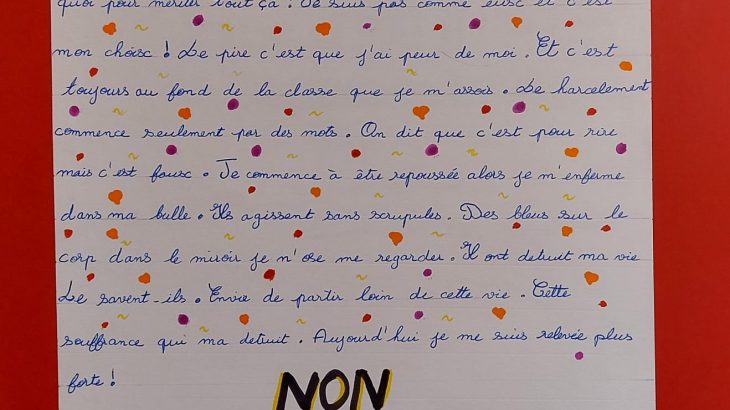 quoi pour mériter tout ça. Je suis pas comme eusc et c'est
mon choisc ! Le pire c'est que j'ai peur de moi. Et c'est
toujours au fond de la classe que je m'assois. Le harcelement
commence seulement par des mots. On dit que c'est pour rire
mais c'est fausc. Je commence à être repoussée alors je m'enferme
dans ma bulle. Ils agissent sans scrupules. Des bleus sur le
corp dans le miroir je n'ose me regarder. Il ont detruit ma vie
Le savent-ils. Envie de partir loin de cette vie. Cette
souffrance qui ma detruit. Aujourd'hui je me suis relevée plus
forte !
NON